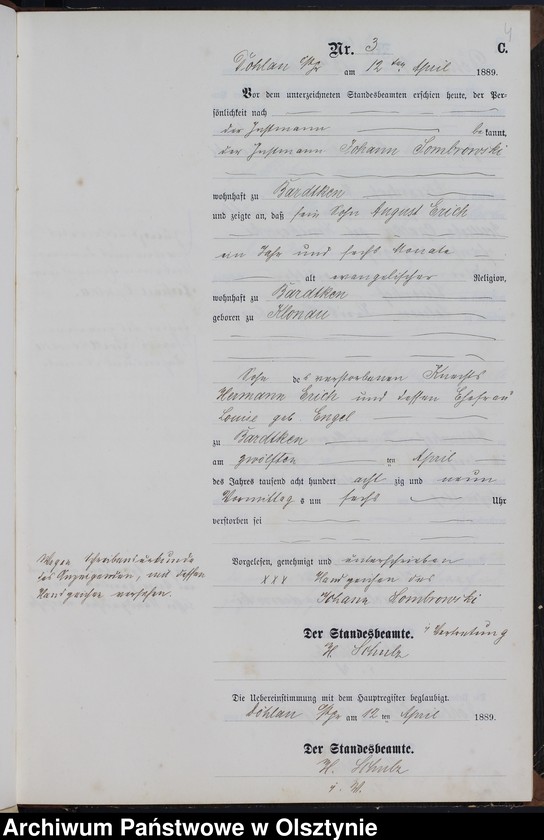 4
Nr. 3 C.
Döhlau Opr am 12 ten April 1889.
Vor dem unterzeichneten Standesbeamten erschien heute, der Per-
sönlichkeit nach
der Instmann bekannt,
der Instmann Johann Sombrowski
wohnhaft zu Bardtken
und zeigte an, daß sein Sohn August Erich
ein Jahr und sechs Monate
alt evangelischer Religion,
wohnhaft zu Bardtken
geboren zu Klonau
Sohn des verstorbenen Knechts
Hermann Erich und dessen Ehefrau
Louise geb Engel
zu Bardtken
am zwölften ten April
des Jahres tausend acht hundert acht zig und neun
Vormittags um sechs Uhr
verstorben sei
Vorgelesen, genehmigt und unterschrieben
Wegen Schreibensunkunde
des Anzeigenden, mit dessen
Handzeichen versehen.
XXX Handzeichen des
Johann Sombrowski
Der Standesbeamte. i Vertretung
H. Schulz
Die Uebereinstimmung mit dem Hauptregister beglaubigt.
Döhlau Opr am 12 ten April 1889.
Der Standesbeamte.
H. Schulz
i. V.
Archiwum Państwowe w Olsztynie